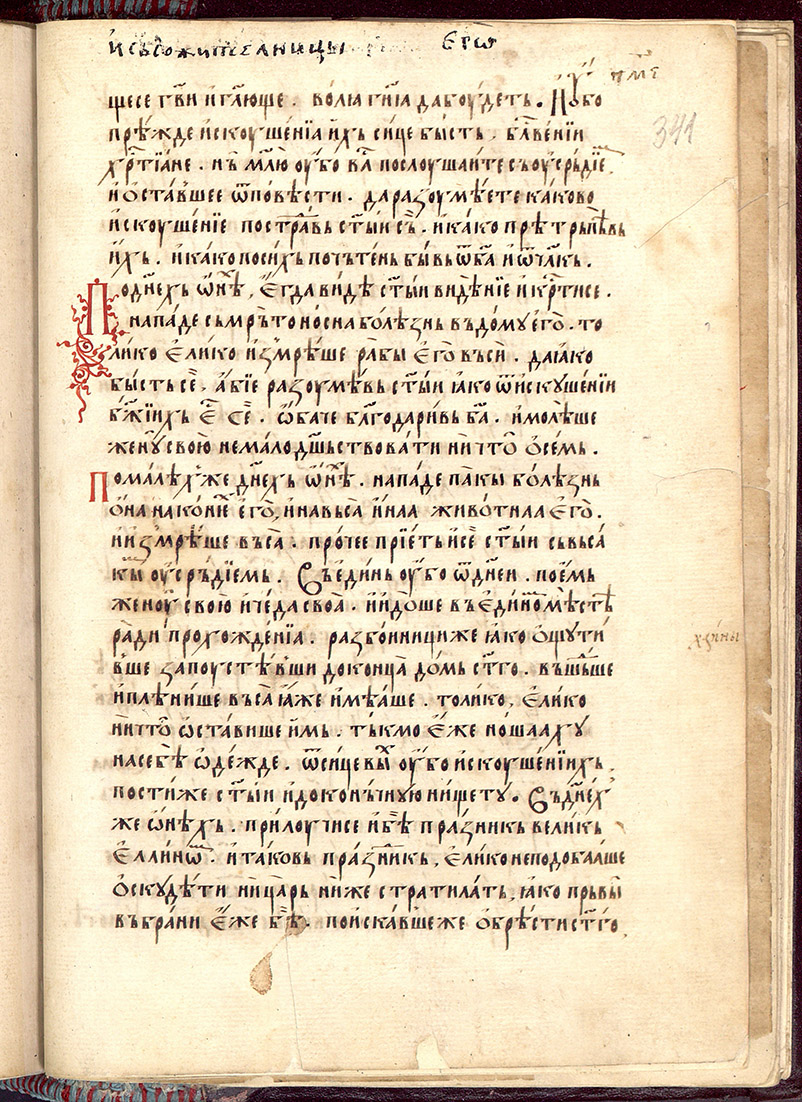 и съжителницы его̑
пм҃г
341
щесе гв҃и и гл҃юще. волꙗ гн҃ꙗ да боудеть. Нь оубо
прѣжде искоушенїа ихъ сице бысть. бл҃гвенїи
хр҃тїане. нь м҃лю оубо вⷭ҇ послоушаите съ оусрьдїе
и оставшее ѿ повѣсти. да разоумѣете каково
искоушенїе пострада́вь ст҃ыи сь҄. и како прѣтрьпѣвь
ихъ. и како по сихъ почьтень бывь ѿ ба҃ и ѿ чл҃кь.
По дн҃ехъ ѡнѣ́хь, егда видѣ ст҃ыи видѣнїе и кр҃тисе.
нападе съмрътоносна болѣзнь въ дому его. то
лико елико измрѣше рабы его въси. да ꙗко
бысть се҄. абїе разоумѣвь ст҃ыи ꙗко ѿ искушенїи
бж҃їихь е҄ се҄. ѡбаче благодаривь ба҃. и молѣше
жену свою не малодш҃ьствовати ни что̀ о семь.
По малѣхже дн҃ехь ѡнѣ́хь. нападе пакы болѣзнь
она на конѥ его, и на въса инаа животнаа его.
и измрѣше въса. прочее прїеть и се҄ ст҃ыи съ въса
кы́м оусрьдїемь. Съ единь оубо ѿ дн҃еи. поемь
женоу свою и чеда своа. и идоше въ едино́м мѣстѣ
ради прохождениа. разбоиници же ꙗко ощути
вше запоустѣвши до конца домь ст҃го. въшьше
и плѣнише въса ꙗже имѣаше. толико, елико
ничто̀ ѡставише имь. тькмо еже ношаахꙋ
на себѣ ѡдежде. ѿ сицевы́х оубо искоушенїихь.
постиже ст҃ыи и до конъчнꙋю нищету. Съ дн҃ех
же ѡнѣхь. прилоучисе и бѣ҄ празникь великь
еллинѡ҄м. и таковь празникь, елико неподобааше
оскудѣти ни царь ниже стратилать, ꙗко прьвы́и
въ брани еже бѣ҄. поискавшеже обрѣсти ст҃го.